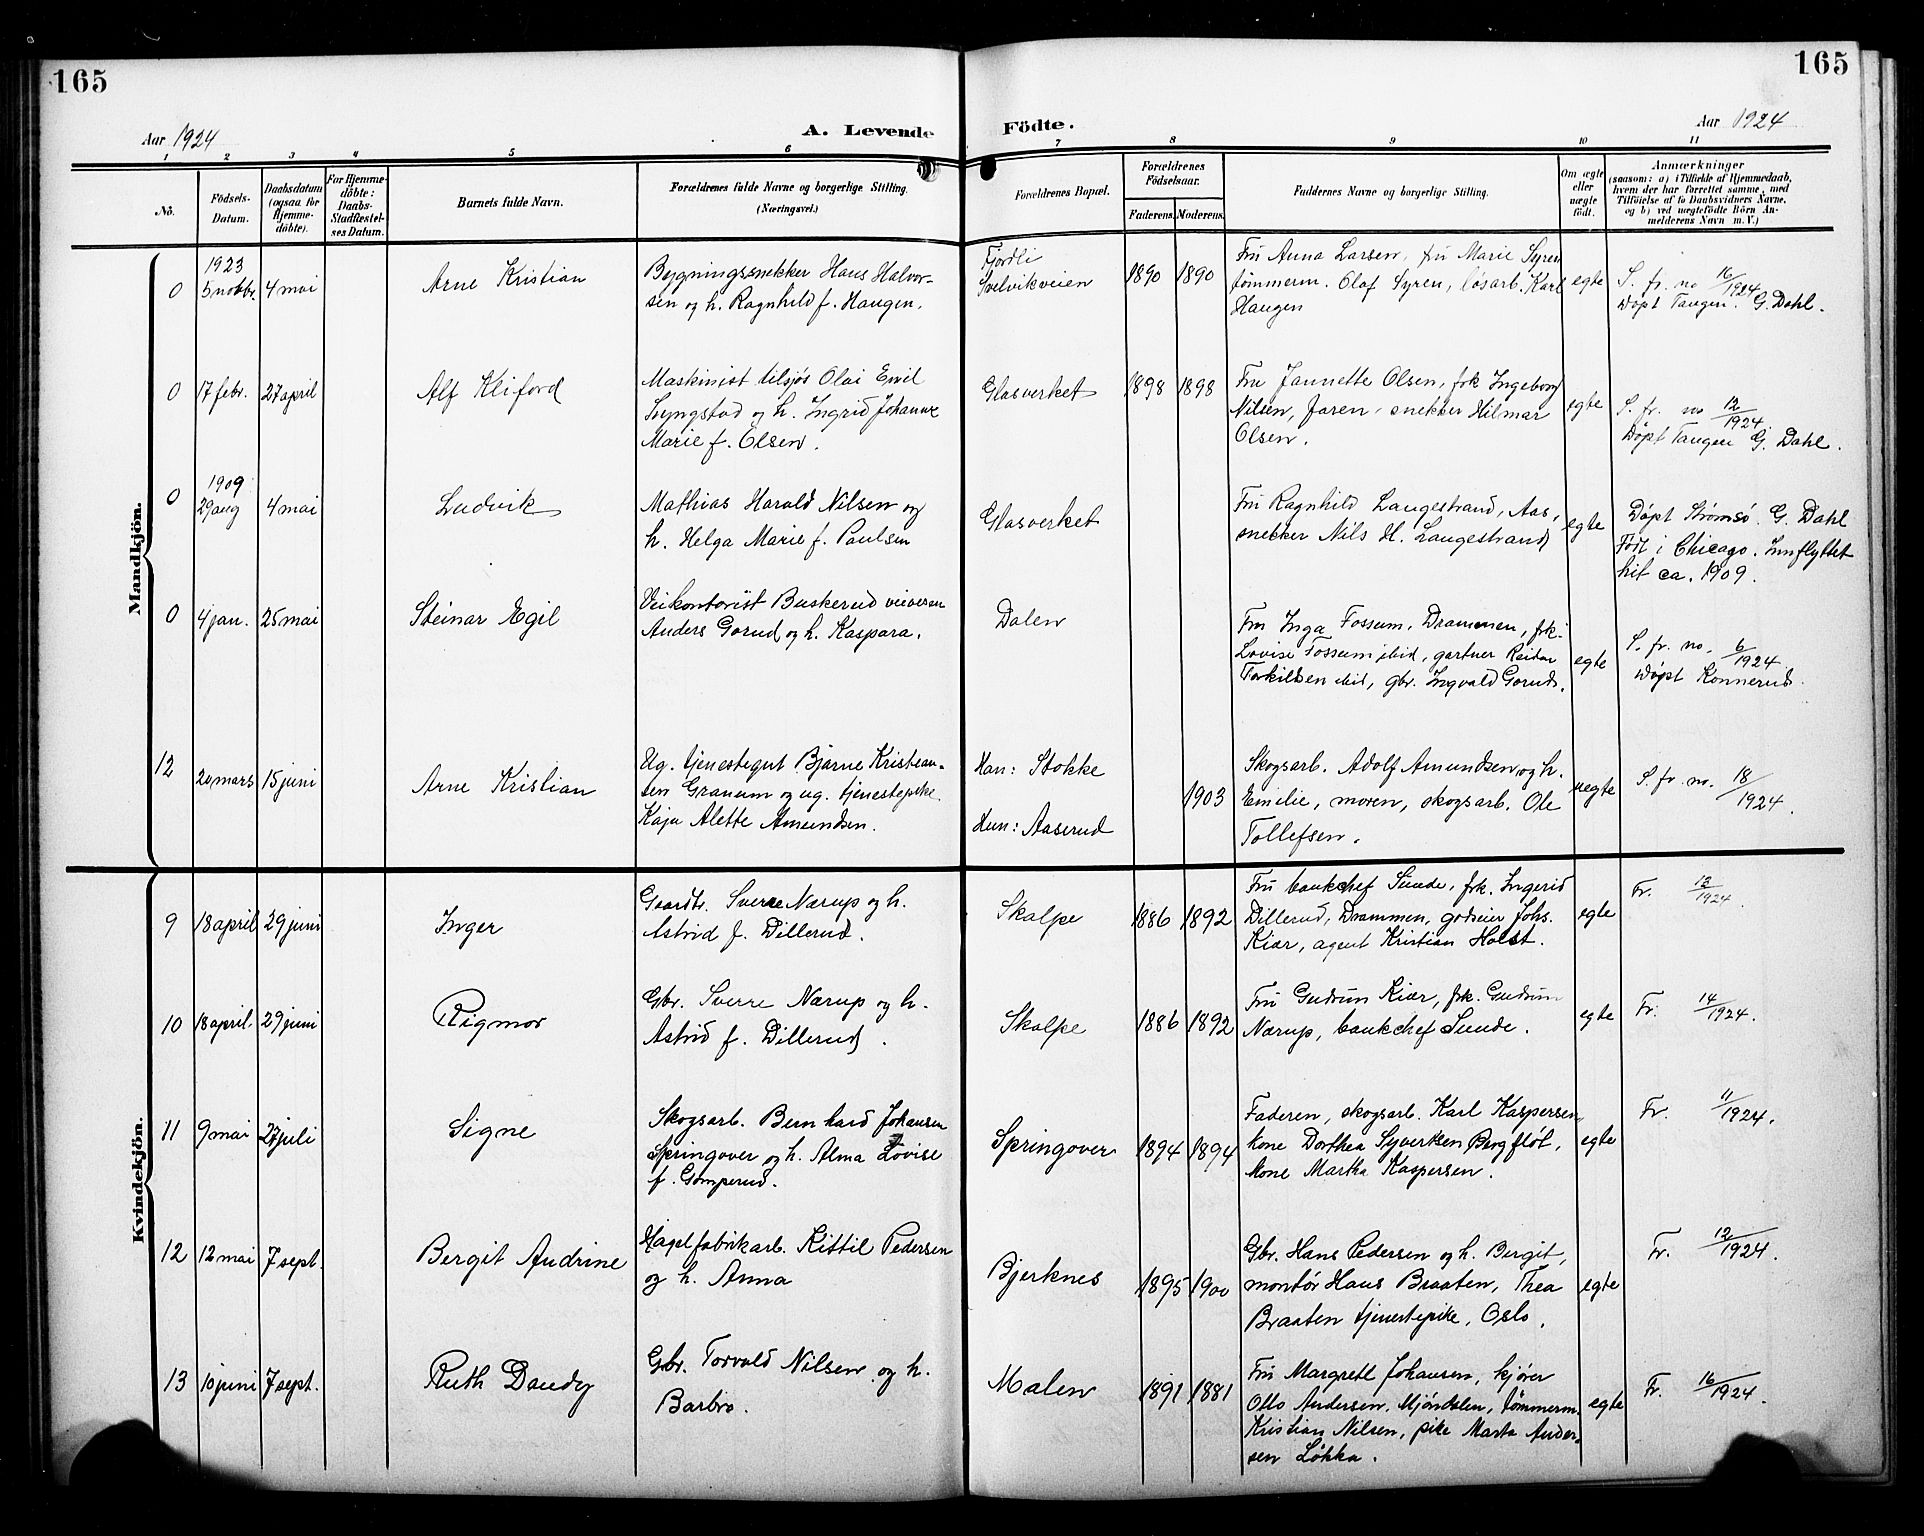 165
165
Aar 1924
A. Levende Födte.
Aar 1924
1 2 3 4 5 6 7 8 9 10 11
No.
Födsels-Datum.
Daabsdatum (ogsaa for Hjemme-döbte).
For Hjemme-döbte: Daabs-Stadfæstel-ses Datum.
Barnets fulde Navn.
Forældrenes fulde Navne og borgerlige Stilling. (Næringsvei.)
Forældrenes Bopæl.
Forældrenes Födselsaar.
Faderens. Moderens.
Faddernes Navne og borgerlige Stilling.
Om ægte eller uægte födt.
Anmærkninger
(saasom: a) i Tilfælde af Hjemmedaab,
hvem der har forrettet samme, med
Tilföielse af to Daabsvidners Navne,
og b) ved uægtefödte Börn An-
melderens Navn m. V.)
Mandkjön.
0
1923
5 novbr.
4 mai
Arne Kristian
Bygningssnekker Hans Halvor-
sen og h. Ragnhild f. Haugen.
Fjordli
Svelvikveien
1890
1890
Fru Anna Larsen, fru Marie Syren
tømmerm. Olaf Syren, løsarb. Karl
Haugen
egte
S. fr. no 16/1924
Døpt Tangen. G. Dahl.
0
17 febr.
27 april
Alf Kliford
Maskinist tilsjøs Olai Emil
Lyngstad og h. Ingrid Johanne
Marie f. Olsen.
Glasverket
1898
1898
Fru Jannette Olsen, frk Ingeborg
Nilsen, faren, snekker Hilmar
Olsen.
egte
S. fr. no 12/1924.
Døpt Tangen G. Dahl.
0
1909
29 aug
4 mai
Ludvik
Mathias Harald Nilsen og
h. Helga Marie f. Paulsen
Glasverket
Fru Ragnhild Langestrand, Aas,
snekker Nils H. Langestrand
egte
Døpt Strømsø. G. Dahl
Født i Chicago. Innflyttet
hit ca. 1909.
0
4 jan.
25 mai
Steinar Egil
Veikontorist Buskerud veivesen
Anders Gorud og h. Kaspara.
Dalen
Fru Inga Fossum, Drammen, frk.
Lovise Fossum ibid, gartner Reidar
Torkildsen ibid, gbr. Ingvald Gorud.
egte
S. fr. no. 6/1924.
Døpt Konnerud.
12
20 mars
15 juni
Arne Kristian
Ug. tjenestegut Bjarne Kristian-
sen Granum og ug. tjenestepike
Kaja Alette Amundsen.
Han: Stokke
Hun: Aaserud
1903
Skogsarb. Adolf Amundsen og h.
Emilie, moren, skogsarb. Ole
Tollefsen.
uegte
S. fr. no. 18/1924.
Kvindekjön.
9
18 april
29 juni
Inger
Gaardbr. Sverre Nærup og h.
Astrid f. Dillerud.
Skalpe
1886
1892
Fru bankchef Sunde, frk. Ingerid
Dillerud, Drammen, godseier Johs.
Kiær, agent Kristian Holst.
egte
Fr. 13/1924.
10
18 april.
29 juni
Rigmor
Gbr. Sverre Nærup og h.
Astrid f. Dillerud.
Skalpe
1886
1892
Fru Gudrun Kiær, frk. Gudrun
Nærup, bankchef Sunde.
egte
Fr. 14/1924.
11
9 mai
27 juli
Signe
Skogsarb. Bernhard Johansen
Springover og h. Alma Lovise
f. Gomperud.
Springover
1894
1894
Faderen, skogsarb. Karl Kaspersen
kone Dorthea Syvertsen Bergfløt,
kone Martha Kaspersen.
egte
Fr. 11/1924.
12
12 mai
7 sept.
Bergit Andrine
Hagelfabrikarb. Kittil Pedersen
og h. Anna
Bjerknes
1895
1900
Gbr. Hans Pedersen og h. Bergit,
montør Hans Braaten, Thea
Braaten tjenestepike, Oslo.
egte
Fr. 12/1924.
13
10 juni
7 sept.
Ruth Dandy
Gbr. Torvald Nilsen og h.
Barbro.
Malen
1891
1881
Fru Margrethe Johansen, kjører
Otto Andersen, Mjøndalen, tømmerm.
Kristian Nilsen, pike Marta Ander-
sen Løkka.
egte
Fr. 16/1924.